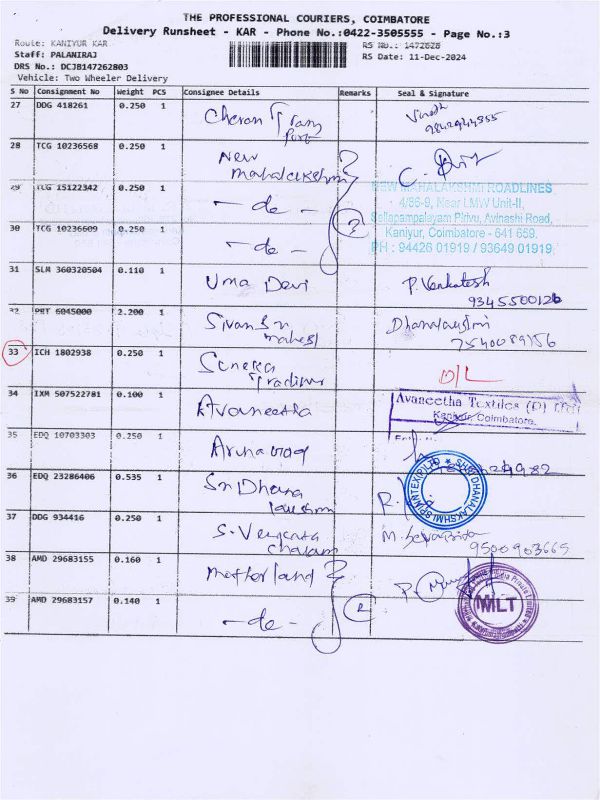 THE PROFESSIONAL COURIERS, COIMBATORE
Delivery Runsheet - KAR - Phone No.:0422-3505555 - Page No.:3
Route: KANIYUR KAR
RS No.: 1472628
Staff: PALANIRAJ
RS Date: 11-Dec-2024
DRS No.: DCJB147262803
Vehicle: Two Wheeler Delivery
S No Consignment No Weight PCS Consignee Details Remarks Seal & Signature
27 DDG 418261 0.250 1 Cheran Trans
port
28 TCG 10236568 0.250 1 New
mahalakshmi
29 TCG 15122342 0.250 1 - do -
NEW MAHALAKSHMI ROADLINES
4/86-9, Near LMW Unit-II,
Sellapampalayam Pirivu, Avinashi Road,
Kaniyur, Coimbatore - 641 659.
PH : 94426 01919 / 93649 01919
30 TCG 10236609 0.250 1 - do -
31 SLM 360320504 0.110 1 Uma Devi P. Venkatesh
9345500126
32 PBT 6045000 2.200 1 Sivan Sri
mahesh
33 ICH 1802938 0.250 1 D/L
34 IXM 507522781 0.100 1 Avaneetha
Avaneetha Textiles (P) Ltd
Kaniyur, Coimbatore.
35 EDQ 10703303 0.250 1
36 EDQ 23286406 0.535 1 Sri Dhana
lakshmi
SHRI DHANALAKSHMI SPINNTEX (P) LTD
37 DDG 934416 0.250 1 S. Vengata
chalam
9500903665
38 AMD 29683155 0.160 1 motterland
39 AMD 29683157 0.140 1 - do -
MLT